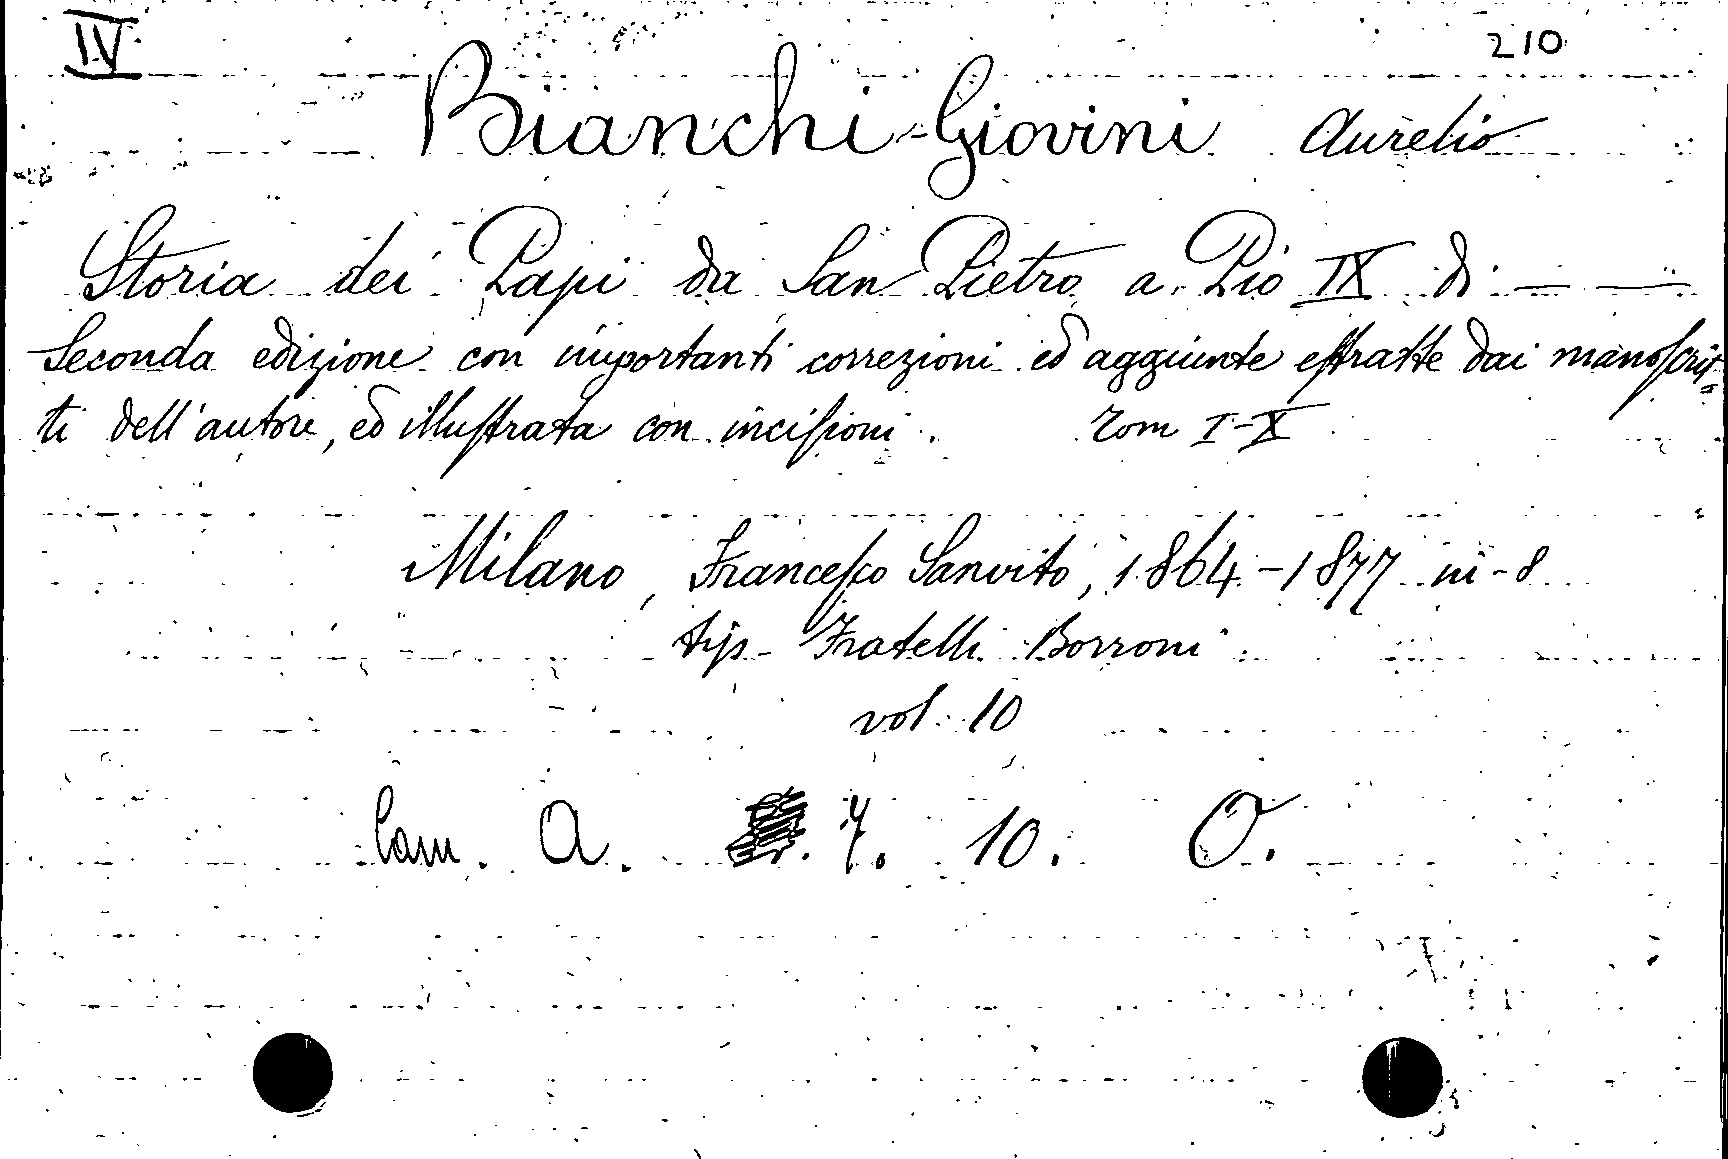 IV
210
Bianchi-Giovini Aurelio
Storia dei Papi da San Pietro a Pio IX di — —
Seconda edizione con importanti correzioni ed aggiunte estratte dai manoscrit=
ti dell'autore, ed illustrata con incisioni. Tom I-X
Milano, Francesco Sanvito, 1864-1877 in-8
tip. Fratelli Borroni
vol. 10
Cam. A. 7. 10. O.